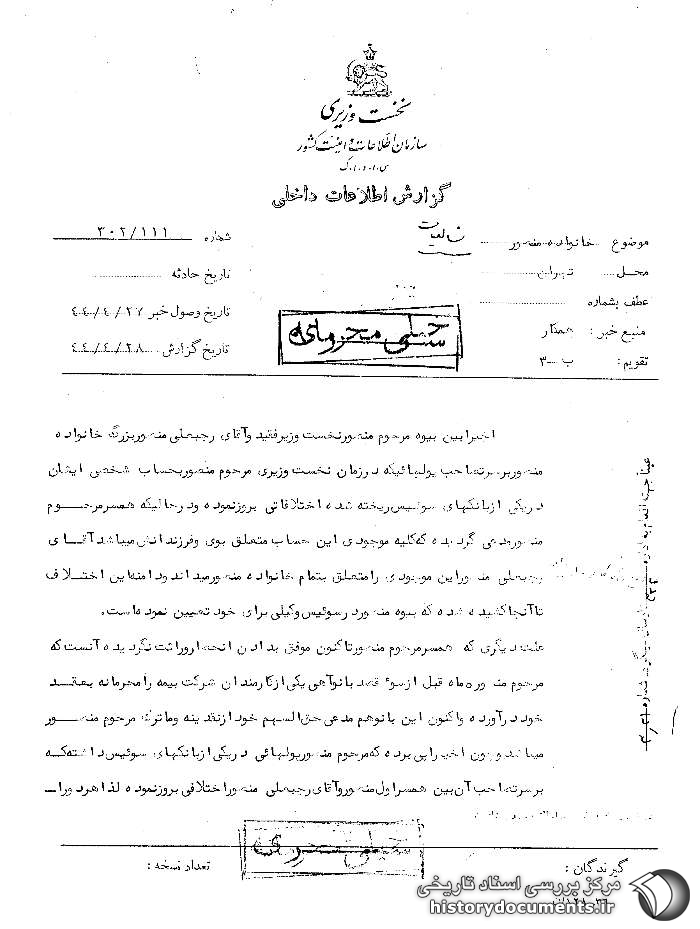 نخست وزیری
سازمان اطلاعات و امنیت کشور
س.ا.و.ا.ک
گزارش اطلاعات داخلی
موضوع خانواده منصور
شماره ۳۰۲/۱۱۱
محل تهران
تاریخ حادثه
عطف بشماره
تاریخ وصول خبر ۴۴/۴/۲۷
منبع خبر: همکار
تاریخ گزارش ۴۴/۴/۲۸
تقویم: ب-۳
خیلی محرمانه
اخیرا بین بیوه مرحوم منصور نخست وزیر فقید و آقای رجبعلی منصور بزرگ خانواده
منصور بر سر تصاحب پولهائیکه در زمان نخست وزیری مرحوم منصور بحساب شخصی ایشان
در یکی از بانکهای سوئیس ریخته شده اختلافاتی بروز نموده و در حالیکه همسر مرحوم
منصور مدعی گردیده که کلیه موجودی این حساب متعلق بوی و فرزندانش میباشد آقای
رجبعلی منصور این موجودی را متعلق بتمام خانواده منصور میداند و دامنه این اختلاف
تا آنجا کشیده شده که بیوه منصور در سوئیس وکیلی برای خود تعیین نموده است.
علت دیگری که همسر مرحوم منصور تاکنون موفق بدادن انحصار وراثت نگردیده آنست که
مرحوم منصور ۵ ماه قبل از سوء قصد بانو آهی یکی از کارمندان شرکت بیمه را محرمانه بعقد
خود در آورده و اکنون این بانو هم مدعی حق السهم خود از نقدینه و ماترک مرحوم منصور
میباشد و چون اخیرا پی برده که مرحوم منصور پولهائی در یکی از بانکهای سوئیس داشته که
بر سر تصاحب آن بین همسر اول منصور و آقای رجبعلی منصور اختلافی بروز نموده لذا هر دو را
خیلی محرمانه
گیرندگان:
تعداد نسخه:
مرکز بررسی اسناد تاریخی
historydocuments.ir